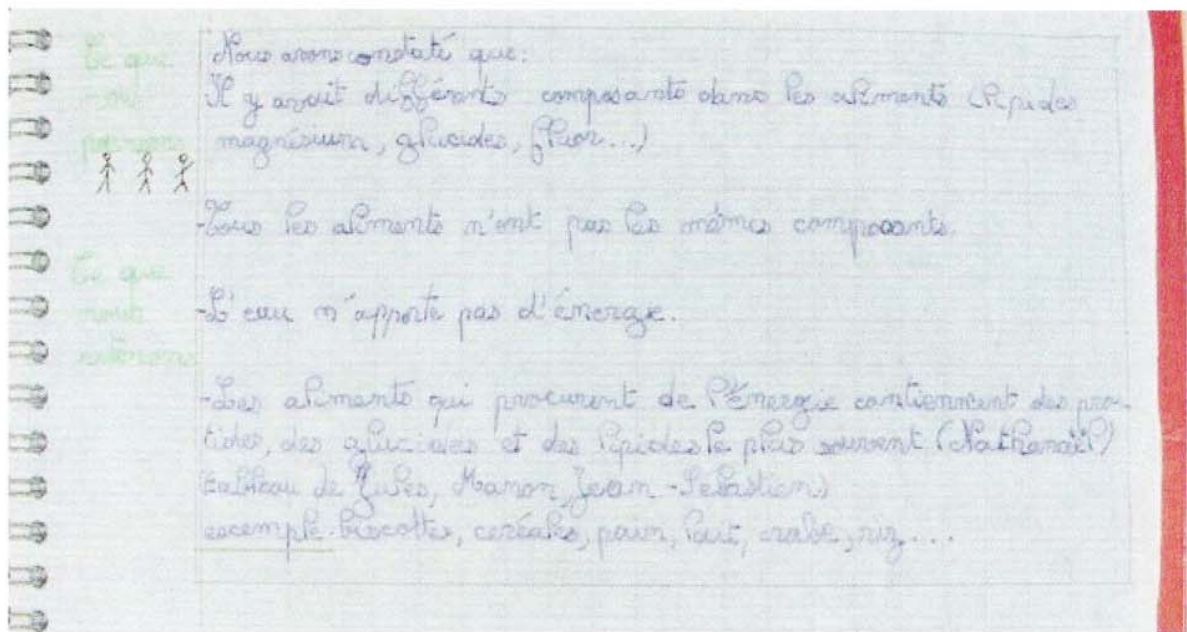 Ce que
nous
pensons
Nous avons constaté que:
Il y avait différents composants dans les aliments (lipides
magnésium, glucides, fluor...)
-Tous les aliments n'ont pas les mêmes composants.
Ce que
nous
-L'eau n'apporte pas d'énergie.
-Les aliments qui procurent de l'énergie contiennent des pro-
tides, des glucides et des lipides le plus souvent (Nathanaël)
tableau de Jules, Manon, Jean-Sebastien)
excemple biscottes, céréales, pain, lait, crabe, riz....